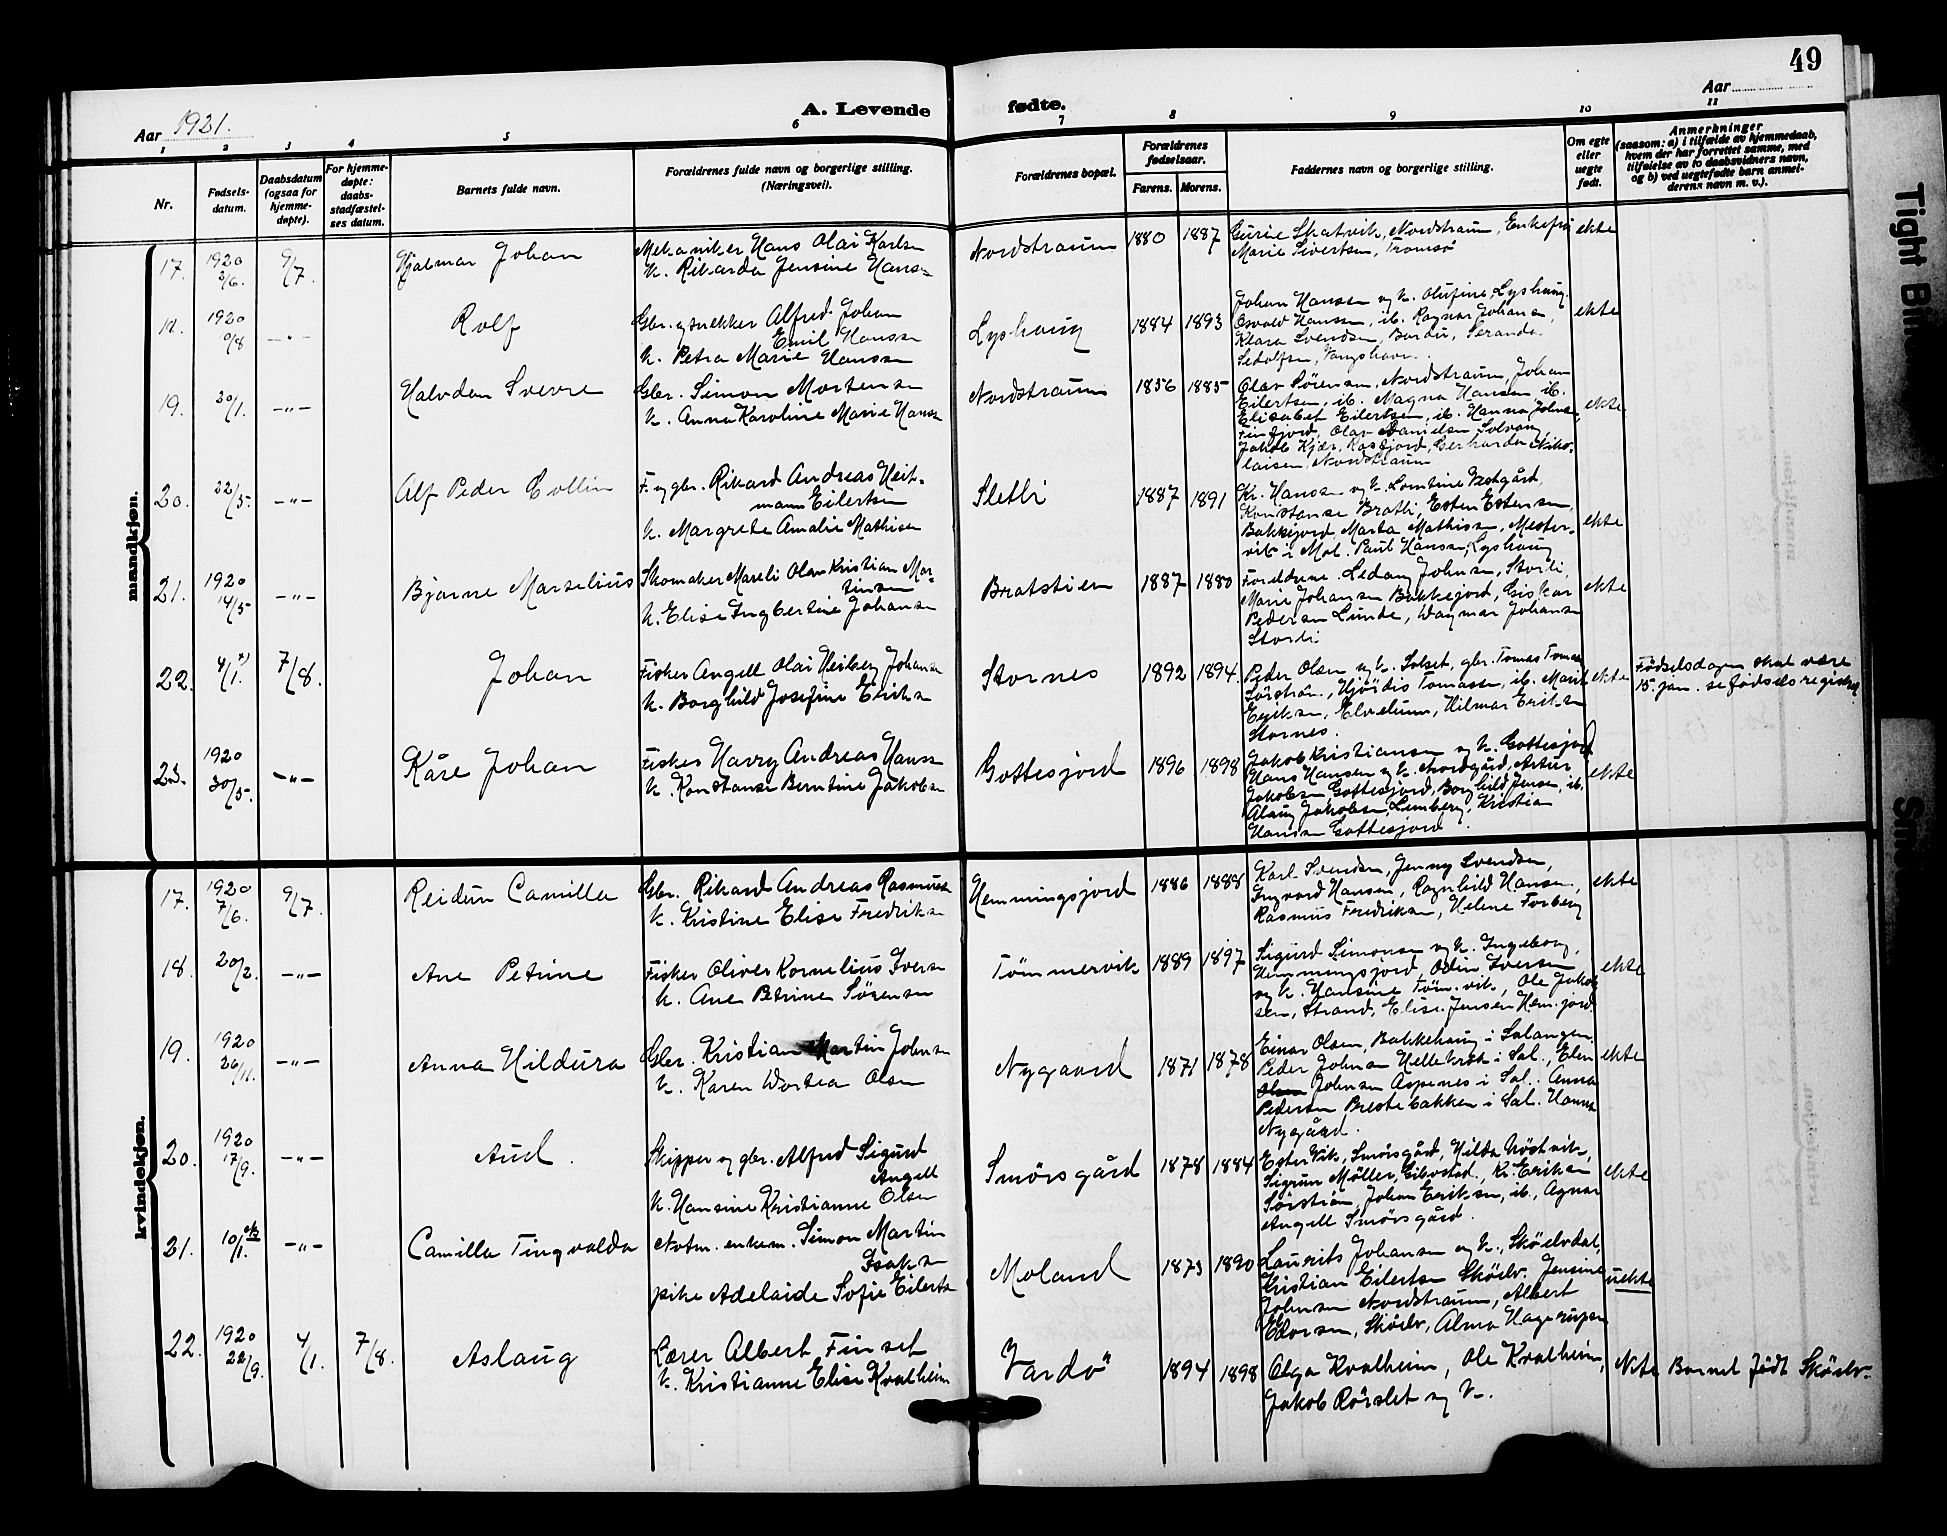 49
Aar 1921.
A. Levende fødte.
Aar
1 2 3 4 5 6 7 8 9 10 11
Nr.
Fødsels-
datum.
Daabsdatum
(ogsaa for
hjemme-
døpte).
For hjemme-
døpte:
daabs-
stadfæstel-
ses datum.
Barnets fulde navn.
Forældrenes fulde navn og borgerlige stilling.
(Næringsvei).
Forældrenes bopæl.
Forældrenes
fødselsaar.
Farens. Morens.
Faddernes navn og borgerlige stilling.
Om egte
eller
uegte
født.
Anmerkninger
(saasom: a) i tilfælde av hjemmedaab,
hvem der har forrettet samme, med
tilføielse av to daabsvidners navn,
og b) ved uegtefødte barn anmel-
derens navn m. v.).
mandkjøn.
17. 1920 3/6. 9/7. Hjalmar Johan
Mekaniker Hans Olai Karlsen
h. Rikarda Jensine Hansen
Nordstraum 1880 1887
Gurie Skatvik, Nordstraum, Enkefru
Marie Sivertsen, Tromsö
ekte
18. 1920 -"- Rolf
Gbr. og snekker Alfred Johan
Emil Hansen
h. Petra Marie Hansen
Lyshaug 1884 1893
Johan Hanssen og h. Olufine, Lyshaug.
Osvald Hanssen, ib. Ragnar Johansen,
Klara Svendsen, Bardu,
Sedolfsen, Vangshavn.
ekte
19. 30/1. -"- Halvdan Sverre
Gbr. Simon Mortensen
h. Anna Karoline Marie Hanssen
Nordstraum 1856 1885
Olav Sørensen, Nordstraum, Johan
Eilertsen, ib. Magna Hansen, ib.
Elisabet Eilertsen, ib. Hanna Johnsen,
Finfjord, Olav Danielsen Solvang,
Jakob Kjær, Rossfjord, Gerharda Niko-
laisen, Nordstraum
ekte
20. 22/5. -"- Alf Peder Collin
F. og gbr. Rikard Andreas Heit-
mann Eilertsen
h. Margrete Amalie Mathisen
Sletli 1887 1891
Kr. Hanssen og h. Lorntine Vestgård,
Konstanse Bratli, Esten Estensen,
Bakkejord, Marta Mathissen, Mester-
vik i Mal. Paul Hanssen, Lyshaug
ekte
21. 1920 14/5. -"- Bjarne Marselius
Skomaker Mareli Olav Kristian Mar-
tinsen
h. Elise Ingbertine Johansen
Bratstien 1887 1880
Foreldrene. Ledang Johnsen, Storli,
Marie Johansen Bakkejord, Giskar
Pedersen Lunde, Dagmar Johansen
Storli
ekte
22. 4/1. x) 7/8. Johan
Fisker Angell Olai Heiberg Johansen
h. Borghild Josefine Eriksen
Stornes 1892 1894
Peder Olsen og h. Solset, gbr. Tomas Tomassen
Hjördis Tomassen, ib. Marit
Eriksen, Elvelunn, Hilmar Eriksen
Stornes.
ekte
Fødselsdagen skal være
15. jan. se fødselsregistret
23. 1920 30/5. -"- Kåre Johan
Fisker Harry Andreas Hansen
h. Konstanse Berntine Jakobsen
Gottesjord 1896 1898
Jakob Kristiansen og h. Gottesjord
Hans Hansen og h. Nordgård, Artur
Jakobsen Gottesjord, Borghild Jensen, ib.
Aslaug Jakobsen, Lemberg, Kristian
Hansen Gottesjord.
ekte
kvindekjøn.
17. 1920 7/6. 9/7. Reidun Camilla
Gbr. Rikard Andreas Rasmussen
h. Kristine Elise Fredriksen
Hemmingsjord 1886 1888
Karl Svendsen, Jenny Svendsen,
Ingvard Hansen, Ragnhild Hansen,
Rasmus Fredriksen, Helene Forberg
ekte
18. 20/2. -"- Ane Petrine
Fisker Oliver Kornelius Iversen
h. Ane Petrine Sørensen
Tömmervik 1889 1897
Sigurd Simonsen og h. Ingeborg,
Hemmingsjord, Odin Iversen
og h. Hansine Töm.vik, Ole Jakob-
sen, Strand, Elise Jensen Hem.jord
ekte
19. 1920 26/11. -"- Anna Hildura
Gbr. Kristian Martin Johnsen
h. Karen Dortea Olsen
Nygaard 1871 1878
Einar Olsen, Bakkehaug i Salangen,
Peder Johnsen Hellekrok i Sal., Elen
Johnsen Aspenes i Sal. Anna
Pedersen Breste bakken i Sal. Hanna
Nygård.
ekte
20. 1920 17/9. -"- Aud.
Skipper og gbr. Alfred Sigurd
Angell
h. Hansine Kristianne Olsen
Smörsgård 1878 1884
Ester Vik, Smörsgård, Hilda Nödtvik,
Sigrun Møller, Eikestad, Kr. Eriksen
Sörstien, Johan Eriksen, ib., Agnar
Angell Smörsgård.
ekte
21. 10/1. -"- Camilla Tingvalda
Notm. enkem. Simon Martin
Isaksen
pike Adelaide Sofie Eilertsen
Moland 1873 1890
Laurits Johansen og h., Sköelvdal,
Kristian Eilertsen Sköelv. Jensine
Johnsen Nordstraum, Albert
Edorsen, Sköelv, Alma Hagerupsen
uekte
22. 1920 22/9. 4/1. 7/8. Aslaug
Lærer Albert Finset
h. Kristianne Elise Kvalheim
Vardö 1894 1898
Olga Kvalheim, Ole Kvalheim,
Jakob Rörslet og h.
ekte
Barnet født Sköelv.
Tight Bin